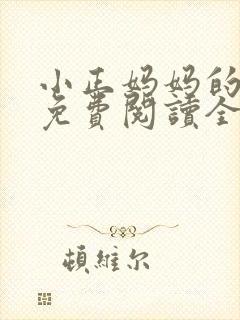 小正妈妈的
免費閱讀全
頓維尔